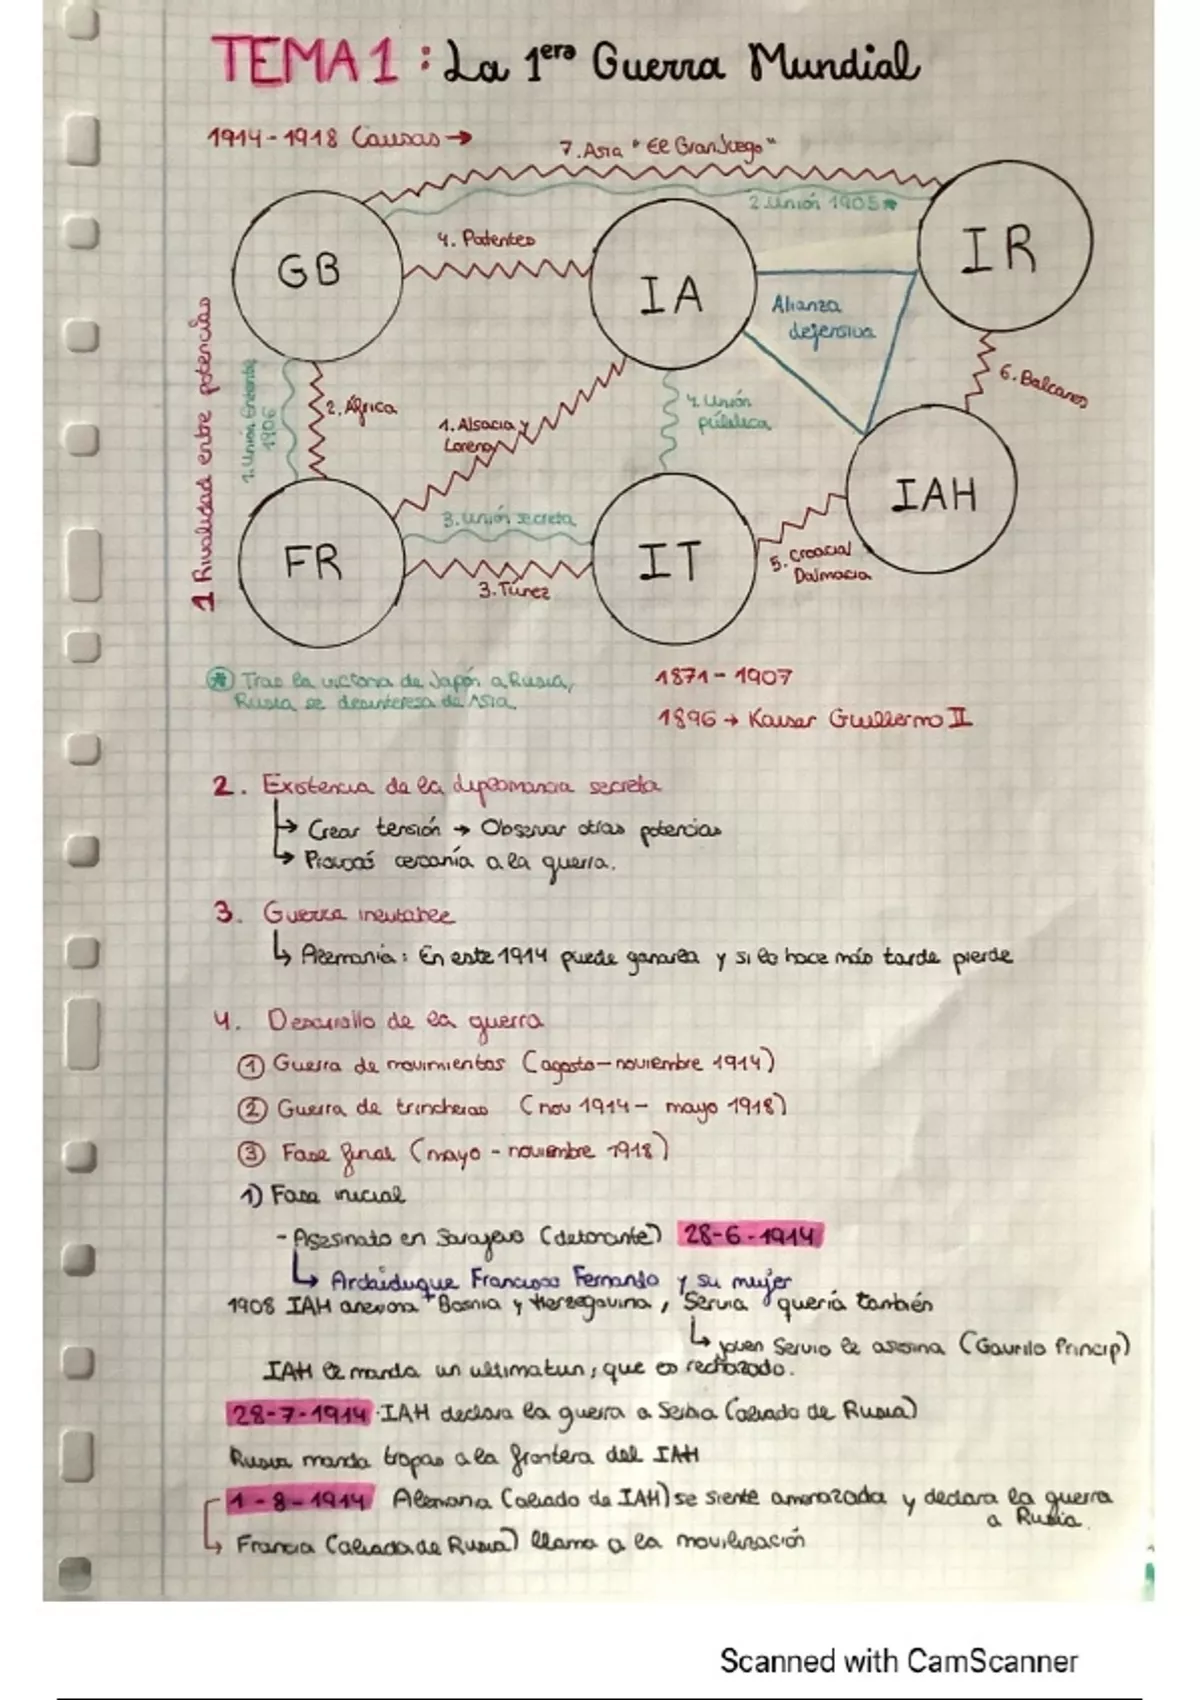 TEMA 1 : La 1era Guerra Mundial
1914-1918 Causas →
7. Asia "El Gran Juego"
2. Unión 1905 *
GB
4. Patentes
IA
IR
Alianza
defensiva
1 Rivalidad entre potencias
1. Unión Entente
1906
2. África
1. Alsacia y
Lorena
4. Unión
pública
6. Balcanes
IAH
3. Unión secreta
FR
3. Túnez
IT
5. Croacia/
Dalmacia
* Tras la victoria de Japón a Rusia,
Rusia se desinteresa de Asia.
1871 - 1907
1896 → Kaiser Guillermo II
2. Existencia de la diplomancia secreta
↳ Crear tensión → Observar otras potencias
↳ Provocó cercanía a la guerra.
3. Guerra inevitable
↳ Alemania: En este 1914 puede ganarla y si lo hace más tarde pierde
4. Desarrollo de la guerra
① Guerra de movimientos (agosto-noviembre 1914)
② Guerra de trincheras (nov 1914 - mayo 1918)
③ Fase final (mayo - noviembre 1918)
1) Fase inicial
- Asesinato en Sarajevo (detonante) 28-6-1914
↳ Archiduque Francisco Fernando y su mujer
1908 IAH anexiona Bosnia y Herzegovina, Servia quería también
↳ joven Servio le asesina (Gavrilo Princip)
IAH le manda un ultimatun, que es rechazado.
28-7-1914 IAH declara la guerra a Serbia (aliado de Rusia)
Rusia manda tropas a la frontera del IAH
1-8-1914 Alemania (aliado de IAH) se siente amenazada y declara la guerra
a Rusia.
↳ Francia (aliada de Rusia) llama a la movilización
Scanned with CamScanner